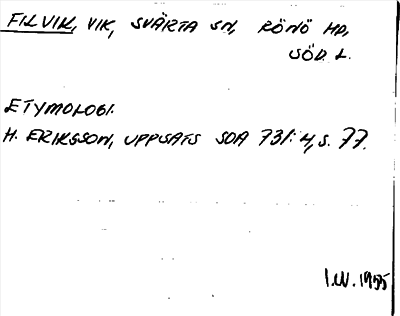 FILVIK, VIK, SVÄRTA SN, RÖNÖ HD,
SÖD. L.
ETYMOLOGI.
H. ERIKSSON, UPPSATS SOA 731:4, S. 77.
I.W. 1955